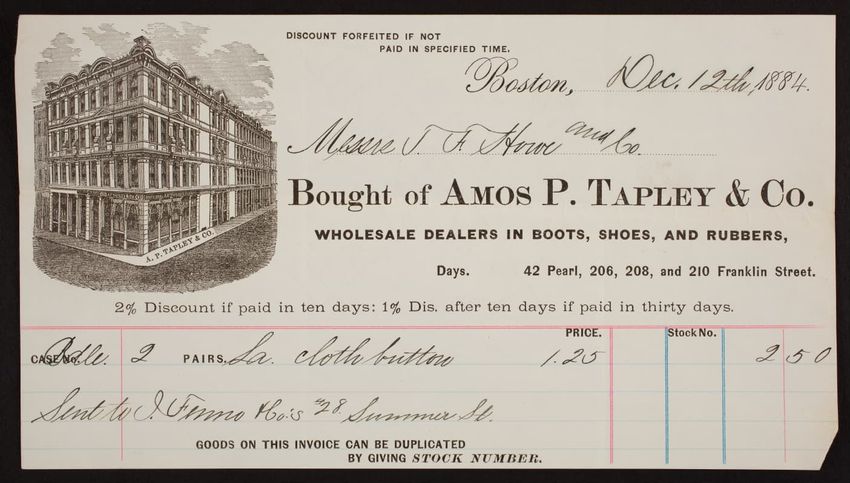 DISCOUNT FORFEITED IF NOT
PAID IN SPECIFIED TIME.
Boston, Dec. 12th, 1884.
Messrs J. F. Howe and Co.
Bought of AMOS P. TAPLEY & CO.
WHOLESALE DEALERS IN BOOTS, SHOES, AND RUBBERS,
Days. 42 Pearl, 206, 208, and 210 Franklin Street.
A. P. TAPLEY & CO.
2% Discount if paid in ten days: 1% Dis. after ten days if paid in thirty days.
PRICE. Stock No.
CASE No. 2 PAIRS, La. cloth button 1.25 2 50
Sent to J. Fenno & Co.'s #28 Summer St.
GOODS ON THIS INVOICE CAN BE DUPLICATED
BY GIVING STOCK NUMBER.